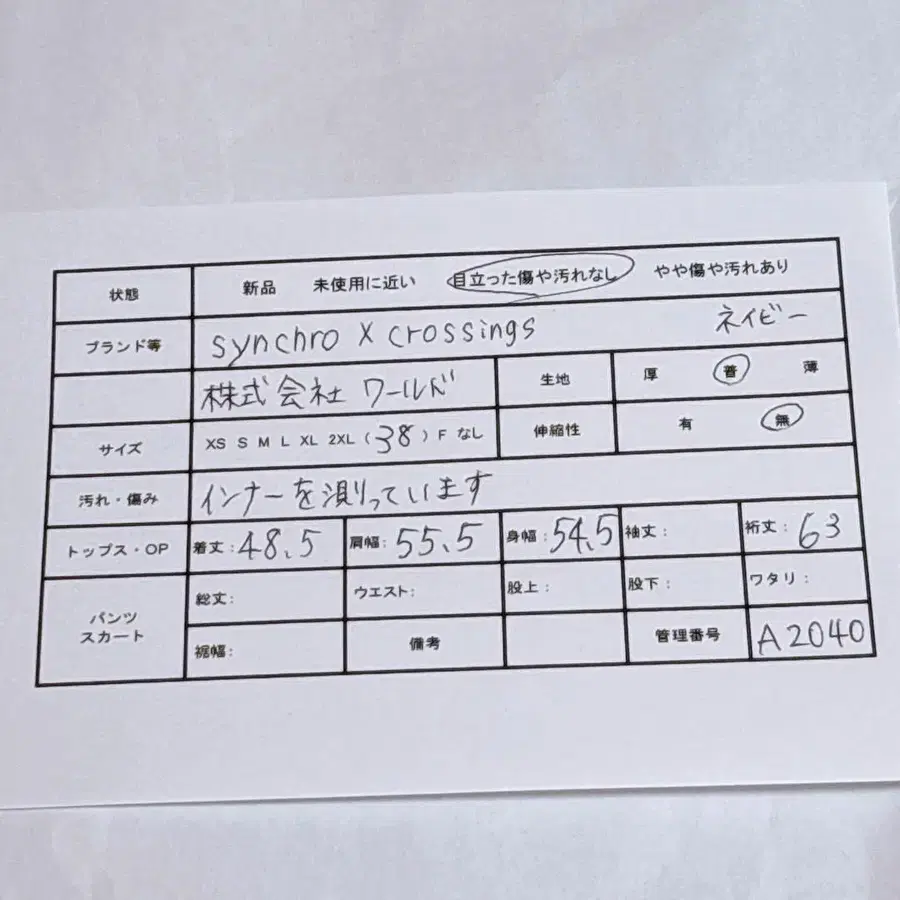 状態 新品 未使用に近い 目立った傷や汚れなし やや傷や汚れあり
ブランド等 synchro x crossings ネイビー
株式会社 ワールド 生地 厚 普 薄
サイズ XS S M L XL 2XL (38) F なし 伸縮性 有 無
汚れ・傷み インナーを測っています
トップス・OP 着丈: 48.5 肩幅: 55.5 身幅: 54.5 袖丈: 裄丈: 63
パンツ スカート 総丈: ウエスト: 股上: 股下: ワタリ:
裾幅: 備考 管理番号 A2040